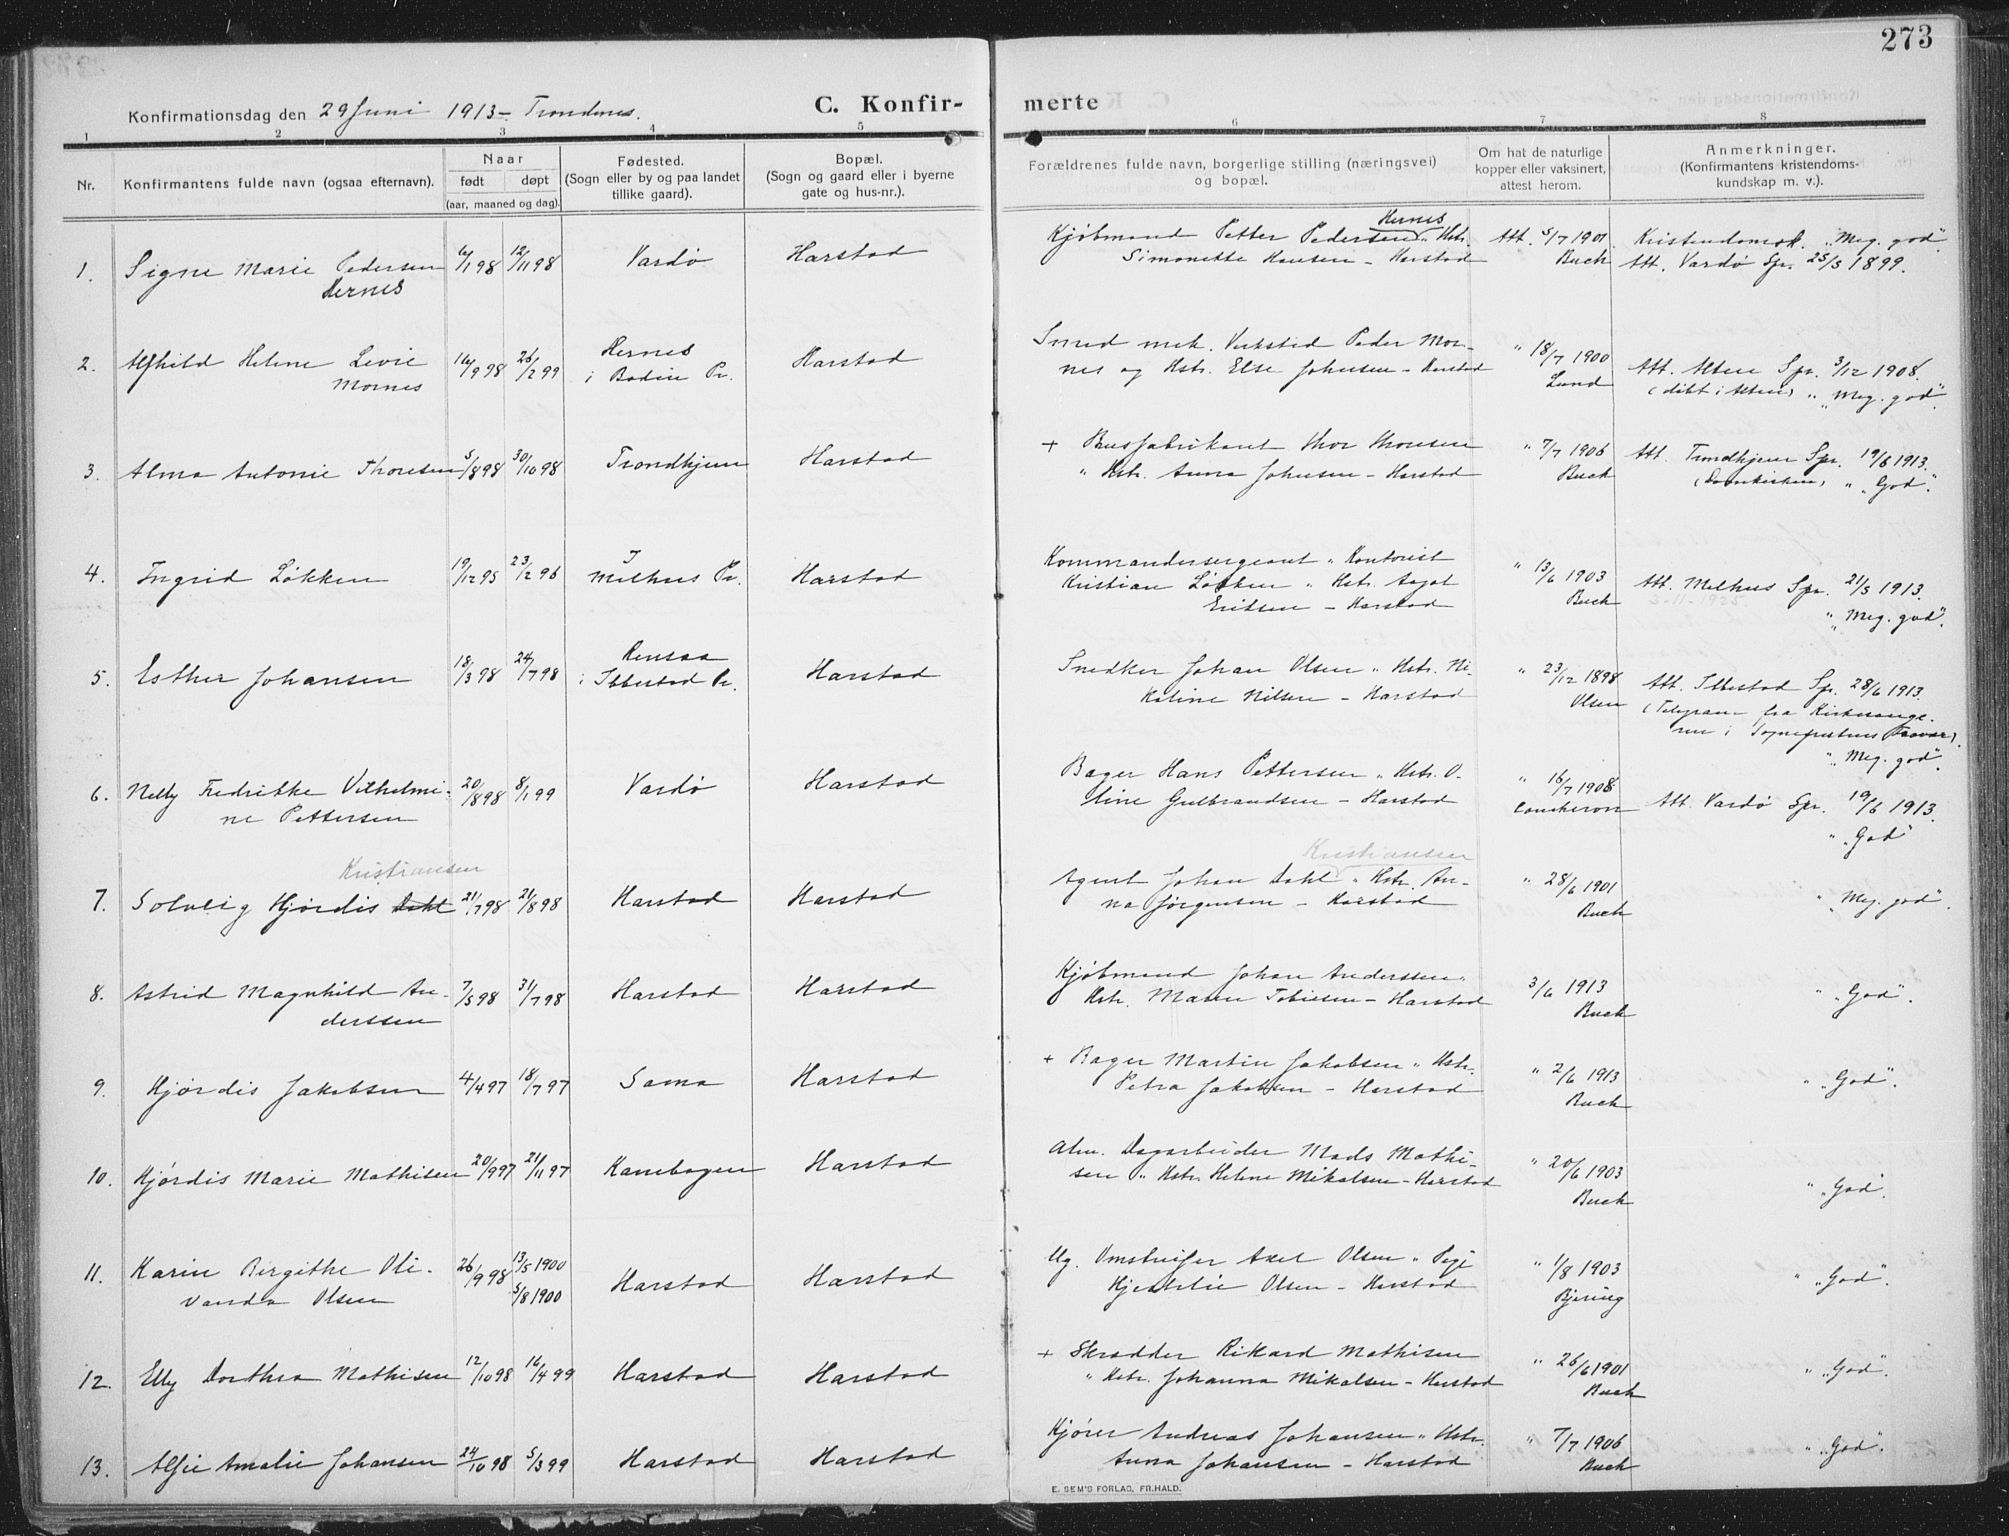 273
Konfirmationsdag den 29 Juni 1913 – Trondenes.
C. Konfir-
merte
1 2 3 4 5 6 7 8
Nr.
Konfirmantens fulde navn (ogsaa efternavn).
Naar
født døpt
(aar, maaned og dag).
Fødested.
(Sogn eller by og paa landet
tillike gaard).
Bopæl.
(Sogn og gaard eller i byerne
gate og hus-nr.).
Forældrenes fulde navn, borgerlige stilling (næringsvei)
og bopæl.
Om hat de naturlige
kopper eller vaksinert,
attest herom.
Anmerkninger.
(Konfirmantens kristendoms-
kundskap m. v.).
Hernes
1. Signe Marie Pedersen 6/1 98 12/11 98 Vardø Harstad Kjøbmand Petter Pedersen „ Hstr. Att. 5/7 1901 Kristendomsk. „Meg. god“
Hernes Simonette Hansen – Harstad Buch Att. Vardø Spr. 25/3 1899.
2. Alfhild Helene Levie 16/9 98 26/2 99 Hernes Harstad Smed mek. Verksted Peder Mor- „ 18/7 1900 Att. Alten Spr. 3/12 1908.
Mornes i Bodin Pr. nes og Hstr. Else Johnsen – Harstad Lund (døbt i Alten) „ „Meg. god“.
3. Alma Antonie Thoresen 5/8 98 30/10 98 Trondhjem Harstad + Brusfabrikant Thor Thoresen „ 7/7 1906 Att. Trondhjem Spr. 19/6 1913.
„ Hstr. Anna Johnsen – Harstad Buch (Domkirken) „ „God“.
4. Ingrid Løkken 19/12 95 23/2 96 I Melhus Pr. Harstad Kommandersergeant „ Kontorist „ 13/6 1903 Att. Melhus Spr. 21/5 1913.
Kristian Løkken „ Hstr. Aagot Buch „ „Meg. god“.
Eriksen – Harstad
5. Esther Johansen 18/3 98 24/7 98 Rensaa Harstad Snedker Johan Olsen „ Hstr. Ni- „ 23/12 1898 Att. Ibbestad Spr. 28/6 1913.
i Ibbestad Pr. koline Nilsen – Harstad Olsen (Telegram fra Kirkesange-
ren i Sogneprestens Fravær).
„ „Meg. god“.
6. Nelly Fredrikke Vilhelmi- 20/8 98 8/1 99 Vardø Harstad Bager Hans Pettersen „ Hstr. O- „ 16/7 1908 Att. Vardø Spr. 19/6 1913.
ne Pettersen line Gulbrandsen – Harstad Concheron „ „God“
Kristiansen Kristiansen
7. Solveig Hjørdis Dahl 21/7 98 21/8 98 Harstad Harstad Agent Johan Dahl „ Hstr. An- „ 28/6 1901 „ „Meg. god“.
na Jørgensen – Harstad Buch
8. Astrid Magnhild An- 7/5 98 31/7 98 Harstad Harstad Kjøbmand Johan Anderssen „ 3/6 1913 „ „God“.
derssen Hstr. Maren Tobiesen – Harstad Buch
9. Hjørdis Jakobsen 4/4 97 18/7 97 Sama Harstad + Bager Martin Jakobsen „ Hstr. „ 2/6 1913 „ „God“.
Petra Jakobsen – Harstad Buch
10. Hjørdis Marie Mathisen 20/9 97 21/11 97 Kanebogen Harstad Alm. Dagarbeider Mads Mathi- „ 20/6 1903 „ „God“.
sen „ Hstr. Helene Mikalsen – Harstad Buch
11. Karin Birgithe Oli- 26/9 98 13/5 1900 Harstad Harstad Ug. Omstreifer Axel Olsen „ Pige „ 1/8 1903 „ „God“.
vanda Olsen 5/8 1900 Olsen – Harstad Bjering
12. Elly Dorthea Mathisen 12/10 98 16/4 99 Harstad Harstad + Skrædder Rikard Mathisen „ 26/6 1901 „ „God“.
„ Hstr. Johanna Mikalsen – Harstad Buch
13. Alfie Amalie Johansen 24/10 98 5/3 99 Harstad Harstad Kjører Andreas Johansen „ Hstr. „ 7/7 1906 „ „God“.
Anna Johansen – Harstad Buch
E. SEM'S FORLAG, FR.HALD.